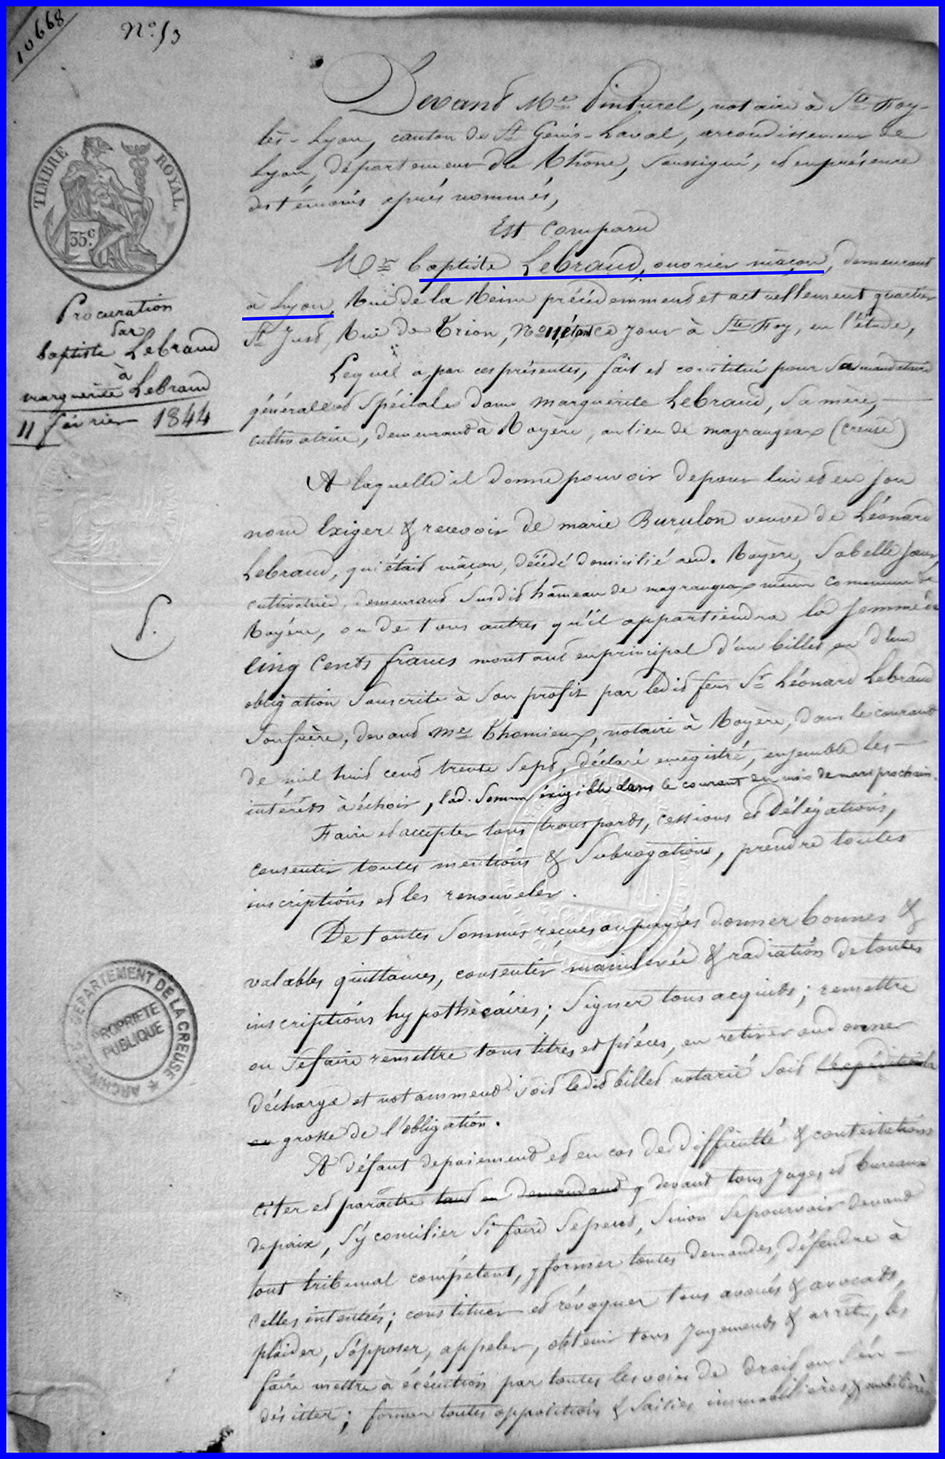 10668
N° 53
Devant Me Pinturel, notaire à Ste Foy-
lès-Lyon, canton de St Genis-Laval, arrondissement de
Lyon, département du Rhône, soussigné, et en présence
des témoins après nommés,
Est comparu
TIMBRE ROYAL
35c
Mr baptiste Lebraud, ouvrier maçon, demeurant
à Lyon, Rue de la Reine précédemment et actuellement quartier
St Just, Rue de Trion, No 11, étant ce jour à Ste Foy, en l'étude,
Procuration
par
baptiste Lebraud
à
marguerite Lebraud
11 février 1844
Lequel a par ces présentes, fait et constitué pour sa mandataire
générale et spéciale dame marguerite Lebraud, sa mère,
cultivatrice, demeurant à Royère, au lieu de magrangeas (creuse)
A laquelle il donne pouvoir de pour lui et en son
nom Exiger & recevoir de marie Burulon veuve de Léonard
Lebraud, qui était maçon, décédé domicilié aud. Royère, sa belle soeur,
cultivatrice, demeurant susdit hameau de magrangeas même commune de
Royère, ou de tous autres qu'il appartiendra la somme de
cinq cents francs montant en principal d'un billet ou d'une
obligation souscrite à son profit par ledit feu Sr Léonard Lebraud
son frère, devant Me Thomieux, notaire à Royère, dans le courant
de mil huit cent trente sept, déclaré enregistré, ensemble les
intérêts à échoir, lad. somme exigible dans le courant du mois de mars prochain.
Faire et accepter tous transports, cessions et délégations,
consentir toutes mentions & subrogations, prendre toutes
inscriptions et les renouveler.
De toutes sommes reçues ou payées donner bonnes &
valables quittances, consentir mainlevée & radiation de toutes
inscriptions hypothécaires; signer tous acquits; remettre
ou se faire remettre tous titres et pièces, en retirer ou donner
décharge et notamment soit ledit billet notarié soit l'expédition
ou grosse de l'obligation.
ARCHIVES DEPARTEMENT DE LA CREUSE
PROPRIETE
PUBLIQUE
A défaut de paiement et en cas de difficulté & contestations
citer et paraître tant en demandant y devant tous juges et bureaux
de paix, s'y concilier si faire se peut, sinon se pourvoir devant
tout tribunal compétent, y former toutes demandes, défendre à
celles intentées; constituer et révoquer tous avoués & avocats,
plaider, s'opposer, appeler, obtenir tous jugements & arrêts, les
faire mettre à exécution par toutes les voies de droit ou s'en
désister; former toutes oppositions & saisies immobilières & mobilières